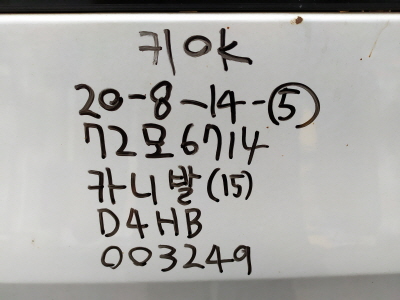 키OK
20-8-14-⑤
72모6714
카니발(15)
D4HB
003249